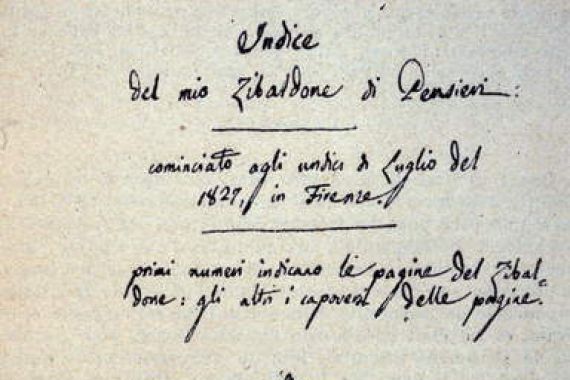 Indice
del mio Zibaldone di Pensieri:
cominciato agli undici di Luglio del
1827, in Firenze.
primi numeri indicano le pagine del Zibal=
done: gli altri i capoversi delle pagine.